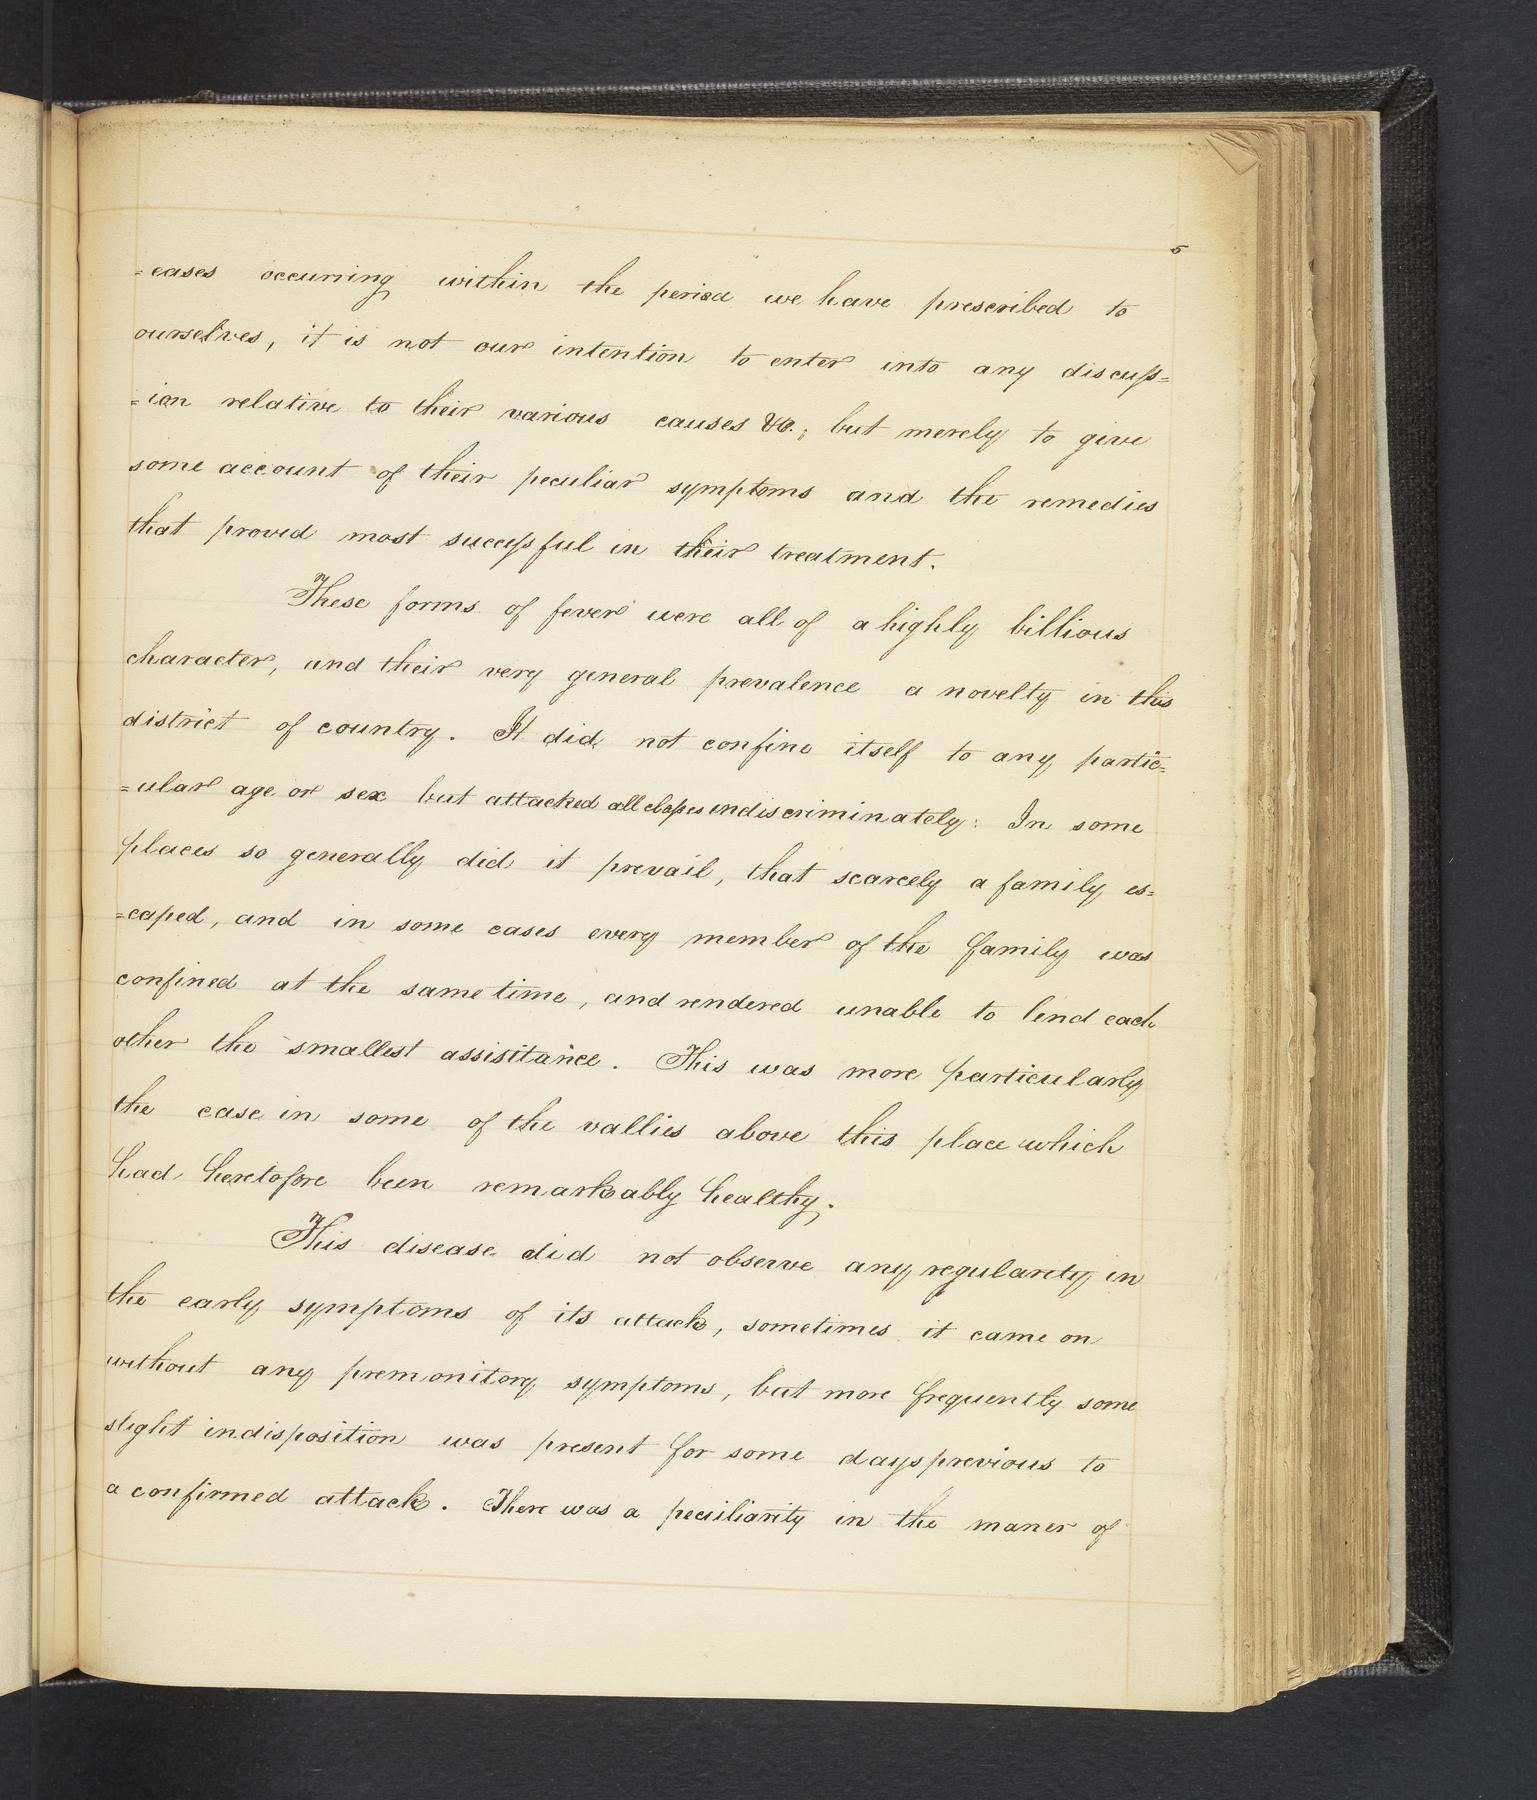 5
=eases occurring within the period we have prescribed to
ourselves, it is not our intention to enter into any discuss=
=ion relative to their various causes &c.; but merely to give
some account of their peculiar symptoms and the remedies
that proved most successful in their treatment.
These forms of fever were all of a highly billious
character, and their very general prevalence a novelty in this
district of country. It did not confine itself to any partic=
=ular age or sex but attacked all classes indiscriminately: In some
places so generally did it prevail, that scarcely a family es=
=caped, and in some cases every member of the family was
confined at the same time, and rendered unable to lend each
other the smallest assisitance. This was more particularly
the case in some of the vallies above this place which
had heretofore been remarkably healthy.
This disease did not observe any regularity in
the early symptoms of its attack, sometimes it came on
without any premonitory symptoms, but more frequently some
slight indisposition was present for some days previous to
a confirmed attack. There was a peculiarity in the maner of